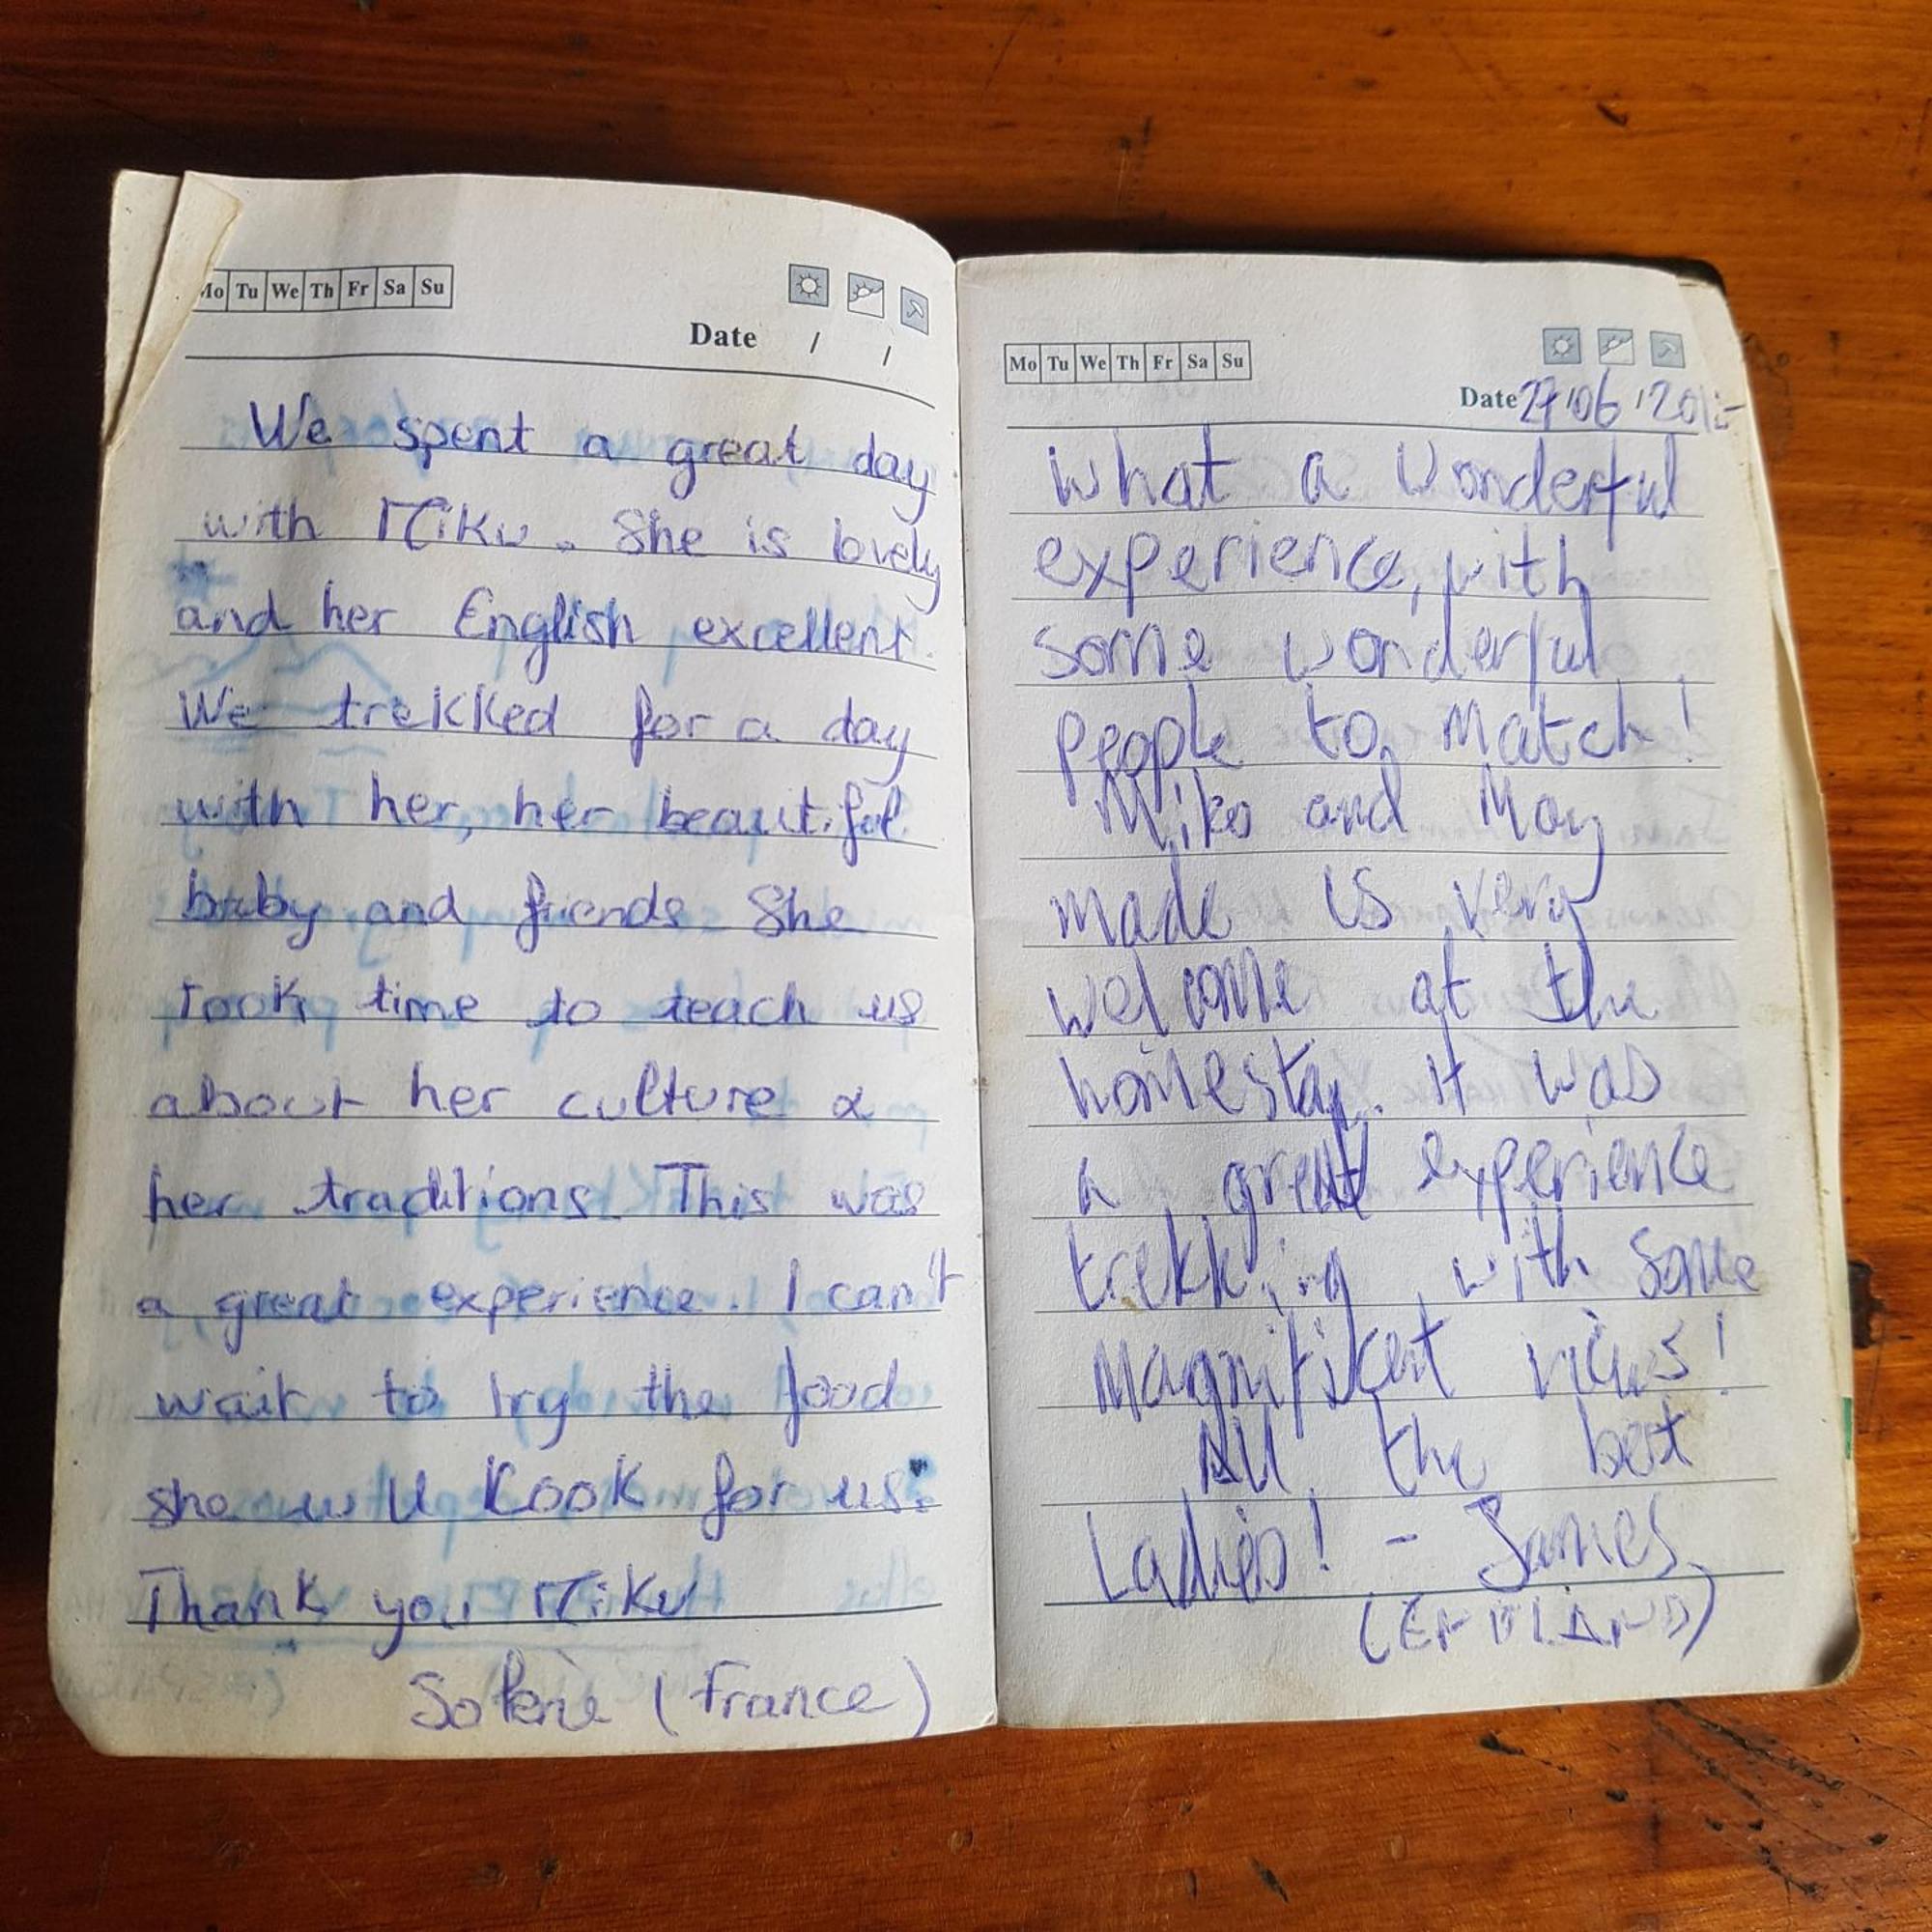 Mo Tu We Th Fr Sa Su
Date / /
We spent a great day
with Miku. She is lovely
and her English excellent.
We trekked for a day
with her, her beautiful
baby and friends She
took time to teach us
about her culture &
her traditions. This was
a great experience. I can't
wait to try the food
she will Kook for us.
Thank you Miku
Solène (France)
Mo Tu We Th Fr Sa Su
Date 27/06/201
what a wonderful
experience, with
some wonderful
people to match!
Miko and May
made us very
welcome at the
homestay. it was
a great experience
trekking with some
magnificent views!
All the best
Ladies! - James
(ENGLAND)